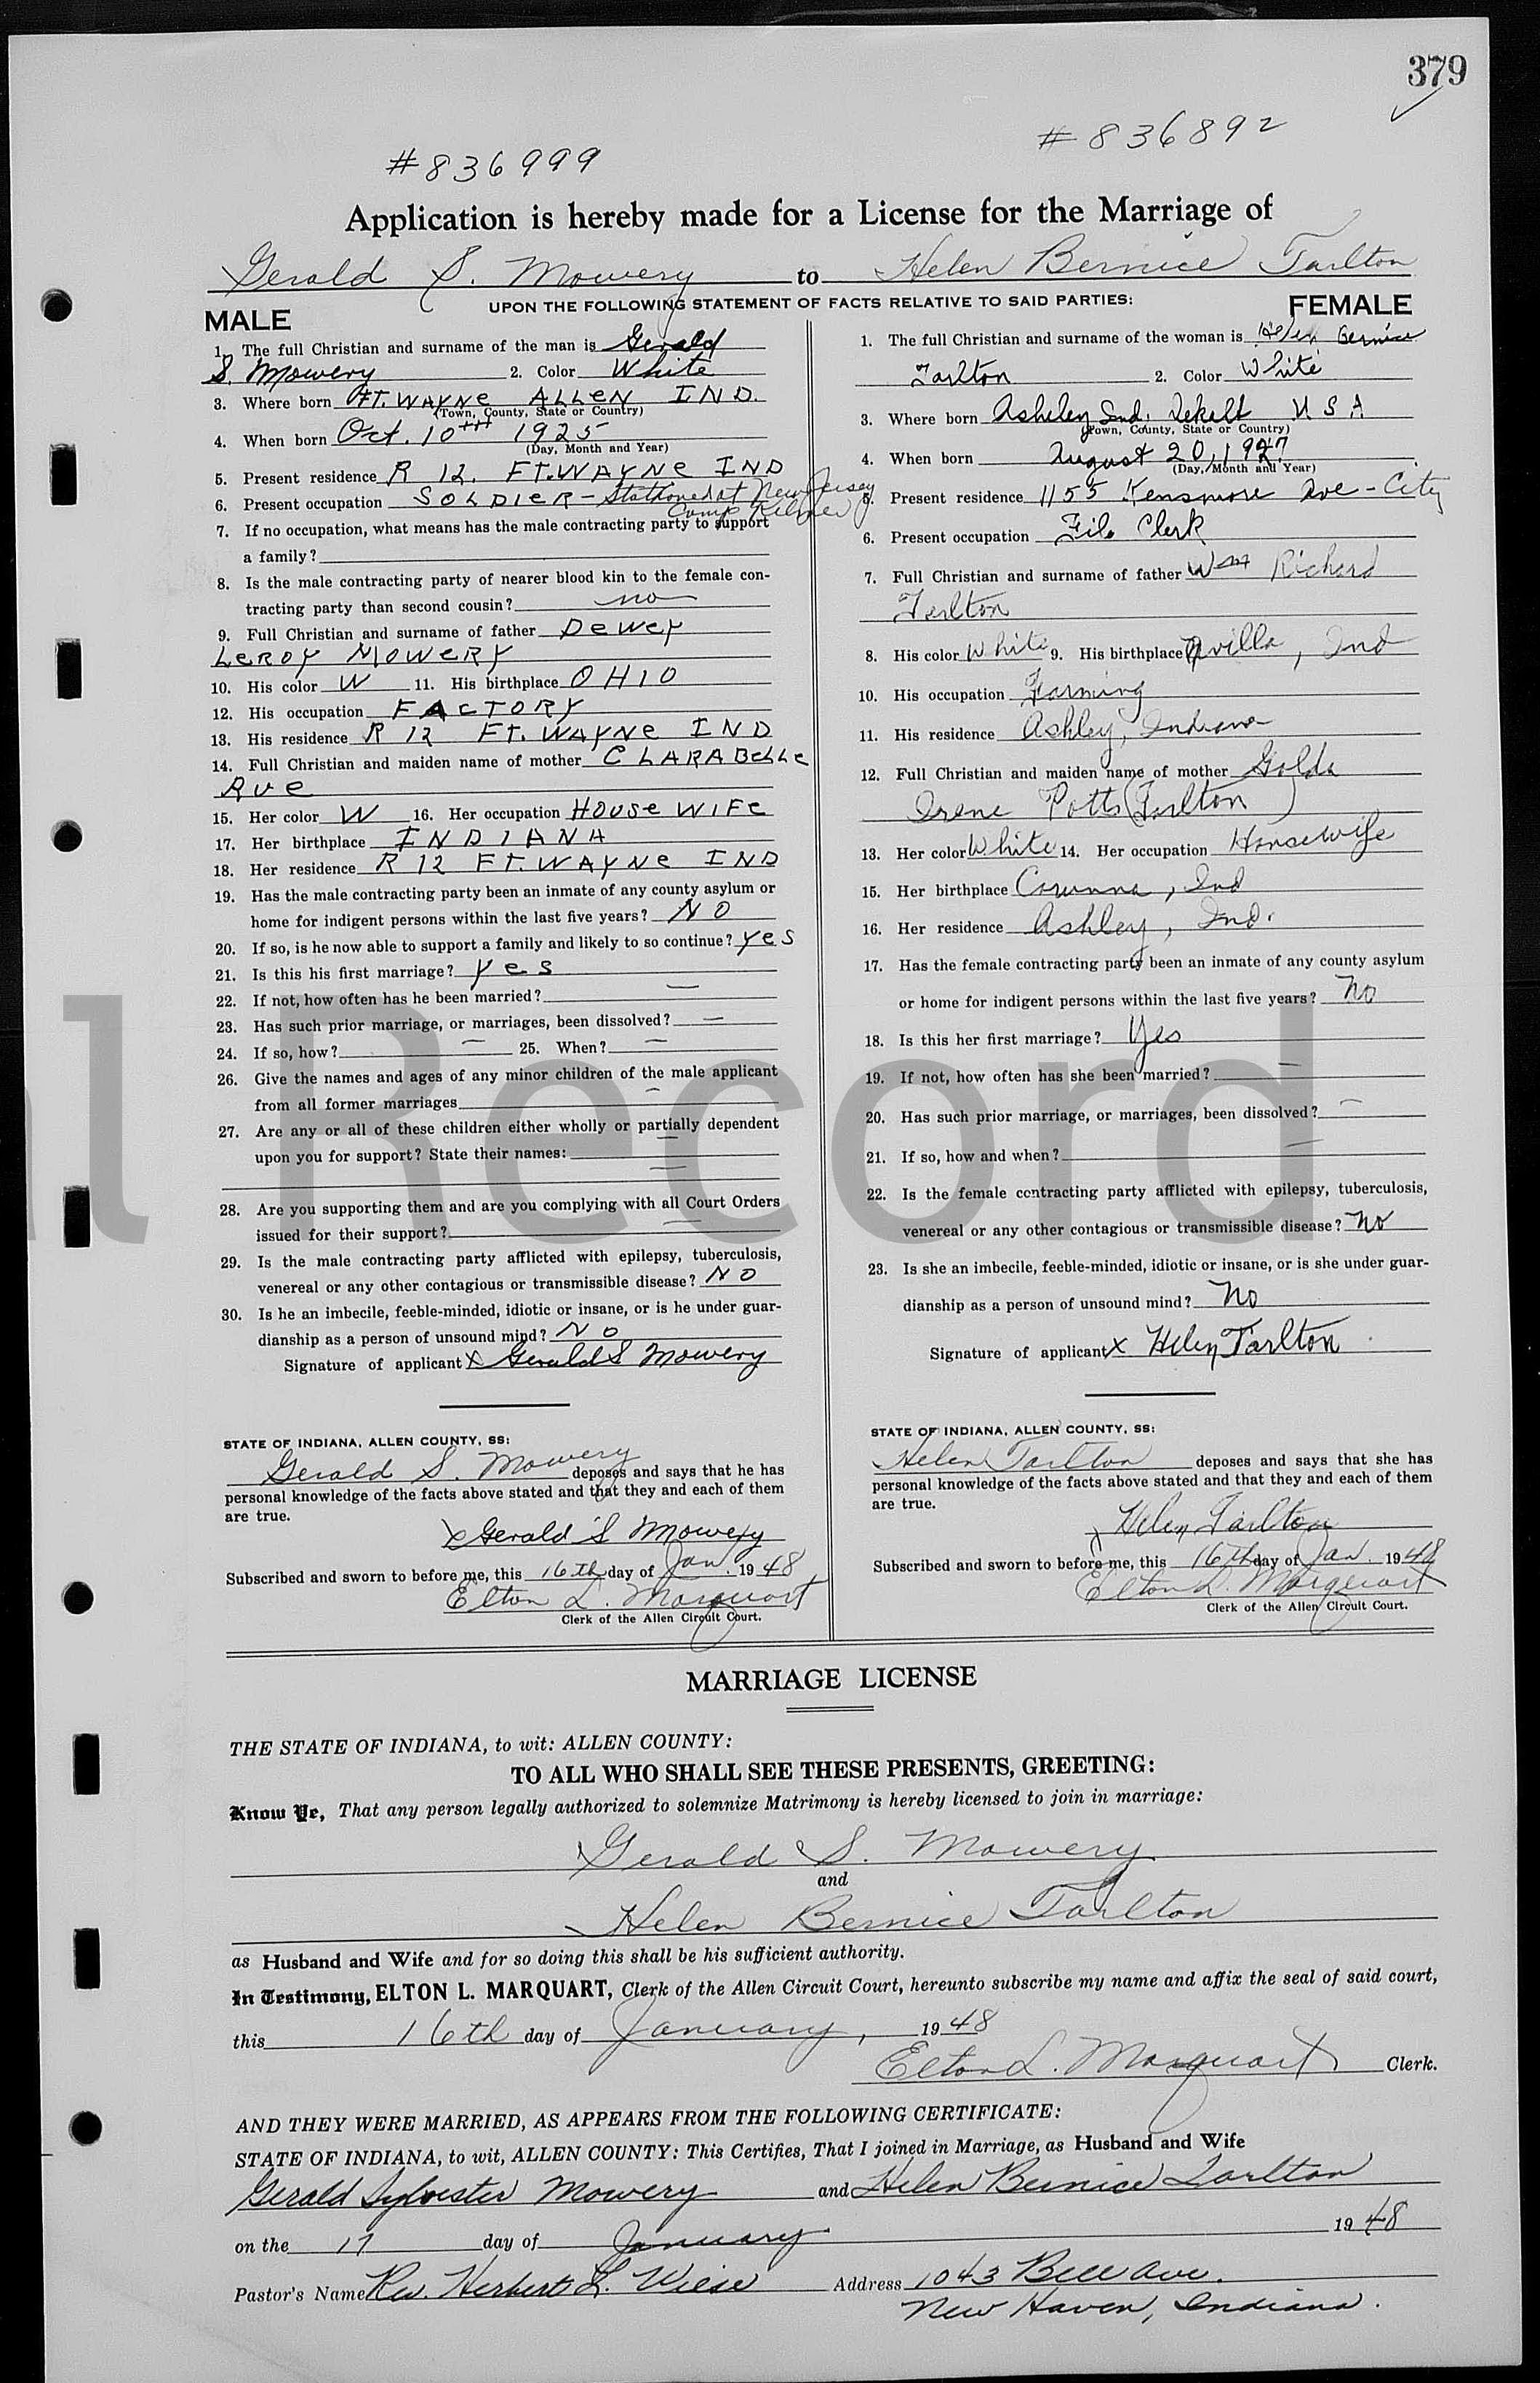 379
#836999
#836892
Application is hereby made for a License for the Marriage of
Gerald S. Mowery to Helen Bernice Tarlton
UPON THE FOLLOWING STATEMENT OF FACTS RELATIVE TO SAID PARTIES:
MALE
1. The full Christian and surname of the man is Gerald
S. Mowery 2. Color White
3. Where born FT. WAYNE ALLEN IND.
(Town, County, State or Country)
4. When born Oct. 10th 1925
(Day, Month and Year)
5. Present residence R 12. FT. WAYNE IND
6. Present occupation SOLDIER - Stationed at New Jersey
Camp Kilmer
7. If no occupation, what means has the male contracting party to support
a family?
8. Is the male contracting party of nearer blood kin to the female con-
tracting party than second cousin? no
9. Full Christian and surname of father Dewey
LEROY MOWERY
10. His color W 11. His birthplace OHIO
12. His occupation FACTORY
13. His residence R 12 FT. WAYNE IND
14. Full Christian and maiden name of mother CLARABELLE
RUE
15. Her color W 16. Her occupation HOUSEWIFE
17. Her birthplace INDIANA
18. Her residence R 12 FT. WAYNE IND
19. Has the male contracting party been an inmate of any county asylum or
home for indigent persons within the last five years? NO
20. If so, is he now able to support a family and likely to so continue? yes
21. Is this his first marriage? yes
22. If not, how often has he been married? —
23. Has such prior marriage, or marriages, been dissolved? —
24. If so, how? — 25. When? —
26. Give the names and ages of any minor children of the male applicant
from all former marriages —
27. Are any or all of these children either wholly or partially dependent
upon you for support? State their names: —
—
28. Are you supporting them and are you complying with all Court Orders
issued for their support? —
29. Is the male contracting party afflicted with epilepsy, tuberculosis,
venereal or any other contagious or transmissible disease? NO
30. Is he an imbecile, feeble-minded, idiotic or insane, or is he under guar-
dianship as a person of unsound mind? NO
Signature of applicant X Gerald S Mowery
STATE OF INDIANA, ALLEN COUNTY, SS:
Gerald S. Mowery deposes and says that he has
personal knowledge of the facts above stated and that they and each of them
are true.
X Gerald S Mowery
Subscribed and sworn to before me, this 16th day of Jan. 1948
Elton L. Marquart
Clerk of the Allen Circuit Court.
FEMALE
1. The full Christian and surname of the woman is Helen Bernice
Tarlton 2. Color White
3. Where born Ashley Ind. Dekalb USA
(Town, County, State or Country)
4. When born August 20, 1927
(Day, Month and Year)
5. Present residence 1155 Kensmore Ave - City
6. Present occupation File Clerk
7. Full Christian and surname of father Wm Richard
Tarlton
8. His color White 9. His birthplace Avilla, Ind
10. His occupation Farming
11. His residence Ashley, Indiana
12. Full Christian and maiden name of mother Golda
Irene Potts (Tarlton)
13. Her color White 14. Her occupation Housewife
15. Her birthplace Corunna, Ind
16. Her residence Ashley, Ind.
17. Has the female contracting party been an inmate of any county asylum
or home for indigent persons within the last five years? No
18. Is this her first marriage? Yes
19. If not, how often has she been married? —
20. Has such prior marriage, or marriages, been dissolved? —
21. If so, how and when? —
22. Is the female contracting party afflicted with epilepsy, tuberculosis,
venereal or any other contagious or transmissible disease? No
23. Is she an imbecile, feeble-minded, idiotic or insane, or is she under guar-
dianship as a person of unsound mind? No
Signature of applicant X Helen Tarlton
STATE OF INDIANA, ALLEN COUNTY, SS:
Helen Tarlton deposes and says that she has
personal knowledge of the facts above stated and that they and each of them
are true.
X Helen Tarlton
Subscribed and sworn to before me, this 16th day of Jan. 1948
Elton L. Marquart
Clerk of the Allen Circuit Court.
l Record
MARRIAGE LICENSE
THE STATE OF INDIANA, to wit: ALLEN COUNTY:
TO ALL WHO SHALL SEE THESE PRESENTS, GREETING:
Know Ye, That any person legally authorized to solemnize Matrimony is hereby licensed to join in marriage:
Gerald S. Mowery
and
Helen Bernice Tarlton
as Husband and Wife and for so doing this shall be his sufficient authority.
In Testimony, ELTON L. MARQUART, Clerk of the Allen Circuit Court, hereunto subscribe my name and affix the seal of said court,
this 16th day of January, 1948
Elton L. Marquart Clerk.
AND THEY WERE MARRIED, AS APPEARS FROM THE FOLLOWING CERTIFICATE:
STATE OF INDIANA, to wit, ALLEN COUNTY: This Certifies, That I joined in Marriage, as Husband and Wife
Gerald Sylvester Mowery and Helen Bernice Tarlton
on the 17 day of January 1948
Pastor's Name Rev. Herbert L. Wiese Address 1043 Bell Ave.
New Haven, Indiana.